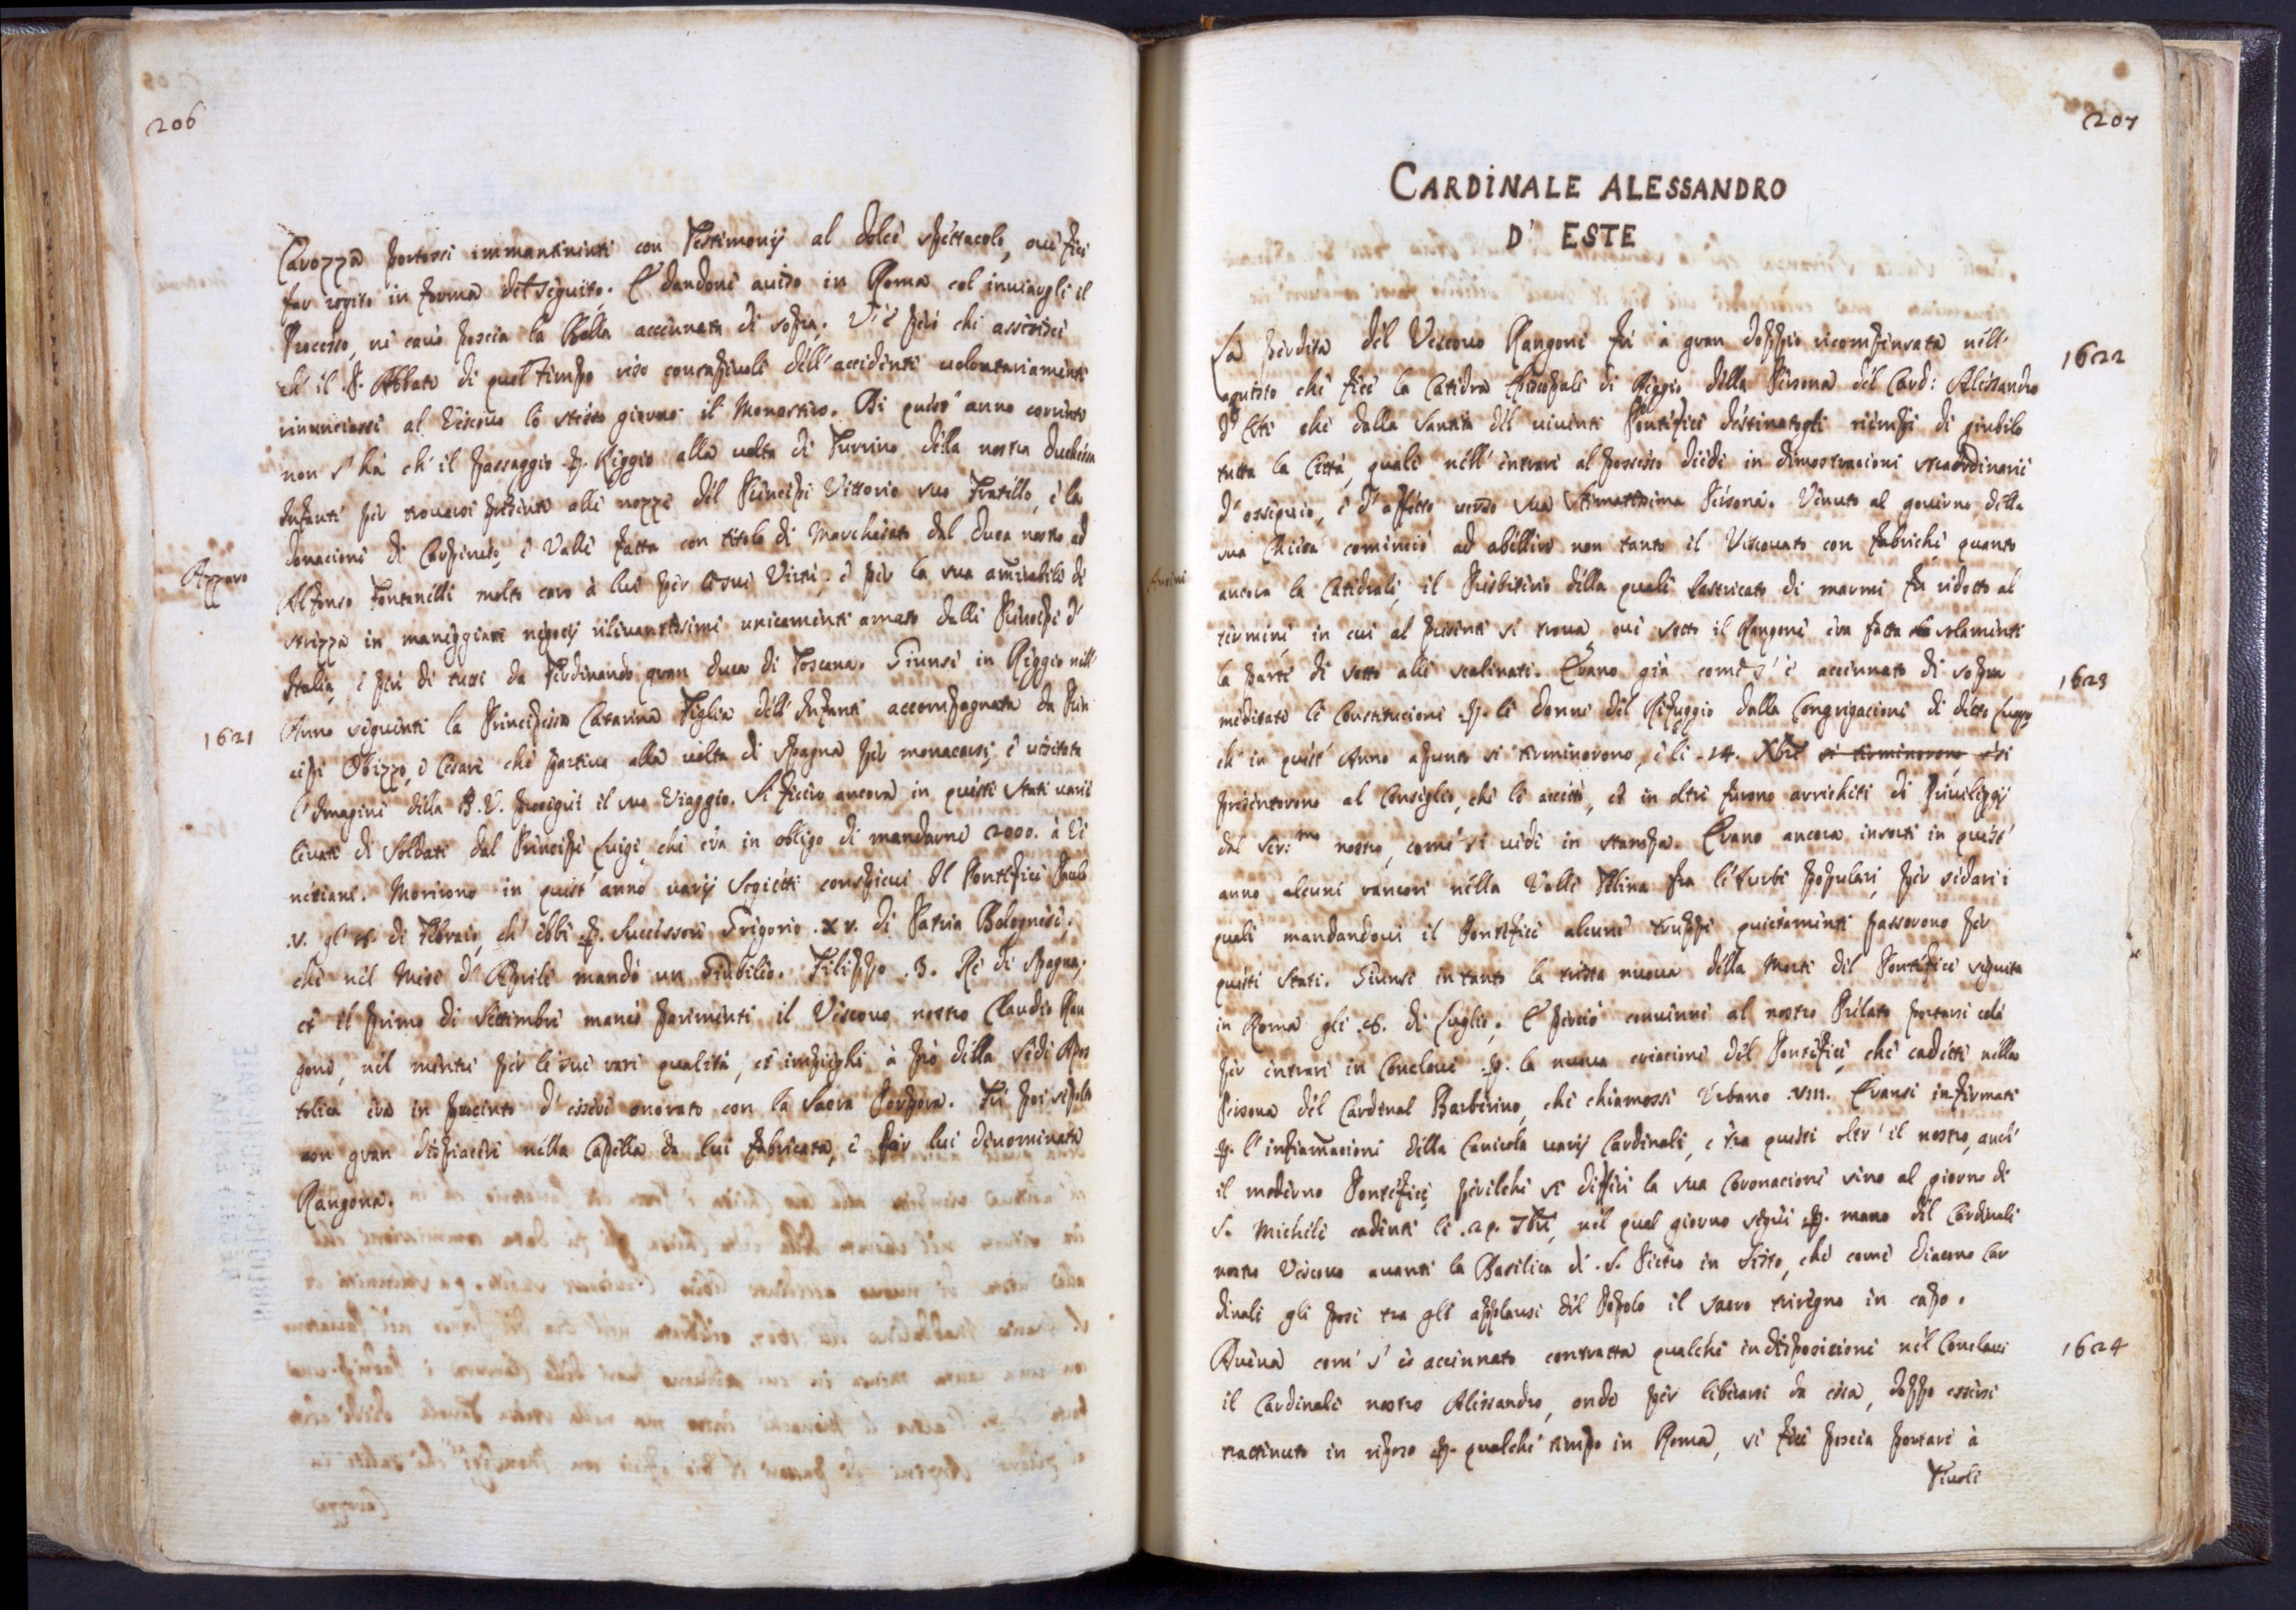 206
Carozza portossi immantinenti con Testimonij al dolce spettacolo, oue fece
far rogito in forma del seguito. E dandone auiso in Roma col inuiargli il
Processo, ne cauò poscia la Bolla accennata di sopra. V'è però chi asserisce
ch'il P. Abbate di quel tempo reso consapeuole dell'accidente uolontariamente
rinunciasse al Vescouo lo stesso giorno il Monastero. Di quest'anno corrente
non s'hà ch'il passaggio p. Reggio alla uolta di Turrino della nostra Duchessa
Infante per trouarsi presente alle nozze del Principe Vittorio suo Fratello, e la
donacione di Carpineto, e Valli fatta con titolo di Marchesato dal Duca nostro ad
Apparo
Alfonso Fontanelli molto caro à lui per le sue Virtù, e per la sua amirabile de
strezza in maneggiare negocij rileuantissimi unicamente amato dalli Principi d'
Italia, e più di tutti da Ferdinando gran Duca di Toscana. Giunse in Reggio nell'
1621
Anno seguente la Principessa Catarina Figlia dell'Infante accompagnata da Prin
cipi Obizzo, e Cesare che partiua alla uolta di Spagna per monacarsi, e uisitata
l'Imagine della B.V. proseguì il suo Viaggio. Si fecero ancora in questi stati uarie
leuate di Soldati dal Principe Luigi, che era in obligo di mandarne 2000. à Ve
neciani. Morirono in quest'anno uarij Sogietti conspicui Il Pontefice Paulo
.V. gl' di Febraio, ch'ebbe p. Successore Grigorio .XV. di Patria Bolognese;
che nel Mese d'Aprile mandò un Giubilio. Filippo .3. Re di Spagna;
et il primo di Settembre mancò parimente il Vescouo nostro Claudio Ran
gone, nel mentre per le sue rare qualità, et impieghi à prò della Sede Apos
tolica era in procinto d'essere onorato con la Sacra Porpora. Fù poi sepolto
con gran dispiacere nella Capella da lui fabricata, e per lui denominata
Rangona.
207
CARDINALE ALESSANDRO
D' ESTE
1622
La perdita del Vescouo Rangone fù à gran doppio ricompensata nell'
aquisto che fece la Catedra Episcopale di Reggio della Persona del Card: Alessandro
d'Este che dalla Santità del uiuente Pontefice destinatogli riempì di giubilo
tutta la Città, quale nell'intrare al possesso diede in dimostracioni straordinarie
d'ossequio, e d'affetto uerso sua Stimatissima Persona. Venuto al gouerno della
Ancini
sua Chiesa cominciò ad abellire non tanto il Vescouato con fabriche quanto
ancora la Catedrale, il Presbiterio della quale lastricato di marmi fu ridotto al
termine in cui al presente si troua, oue sotto il Rangone era fatta solamente
la parte di sotto alle scalinate. Erano già come s'è accennato di sopra
1623
meditate le Constitucioni p. le Donne del Rifuggio dalla Congregacione di detto luogo
ch'in quest'Anno apunto si terminorono, e li .14. Xbre si terminorono esse
presentorono al Consiglio, che le accettò, et in oltre furono arrichite di Priuileggi
dal Ser:mo nostro, come si uede in stampa. Erano ancora insorti in quest'
anno alcuni rancori nella Valle Telina fra le turbe popolari, per sedar i
quali mandandoui il Pontefice alcune truppe quietamente passorono per
questi Stati. Giunse intanto la trista nuoua della Morte del Pontefice seguita
in Roma gli di Luglio. E perciò conuenne al nostro Prelato portarsi colà
per intrare in Conclaue p. la nuoua creacione del Pontefice, che cadette nella
Persona del Cardinal Barberino, che chiamossi Urbano .VIII. Eransi infermati
p. l'infiamacione della Canicola uarij Cardinali, e tra questi oltr'il nostro, anch'
il moderno Pontefice, perilche si differì la sua Coronacione sino al giorno di
S. Michele cadente li .29. 7bre, nel qual giorno seguì p. mano del Cardinale
nostro Vescouo auanti la Basilica di .S. Pietro in Sisto, che come Diacono Car
dinale gli pose tra gli applausi del Popolo il sacro triregno in capo.
1624
Aueua com's'è accennato contratta qualche indisposicione nel Conclaue
il Cardinale nostro Alessandro, onde per liberarsi da essa, doppo essersi
trattenuto in riposo p. qualche tempo in Roma, si fece poscia portare à
Tiuoli